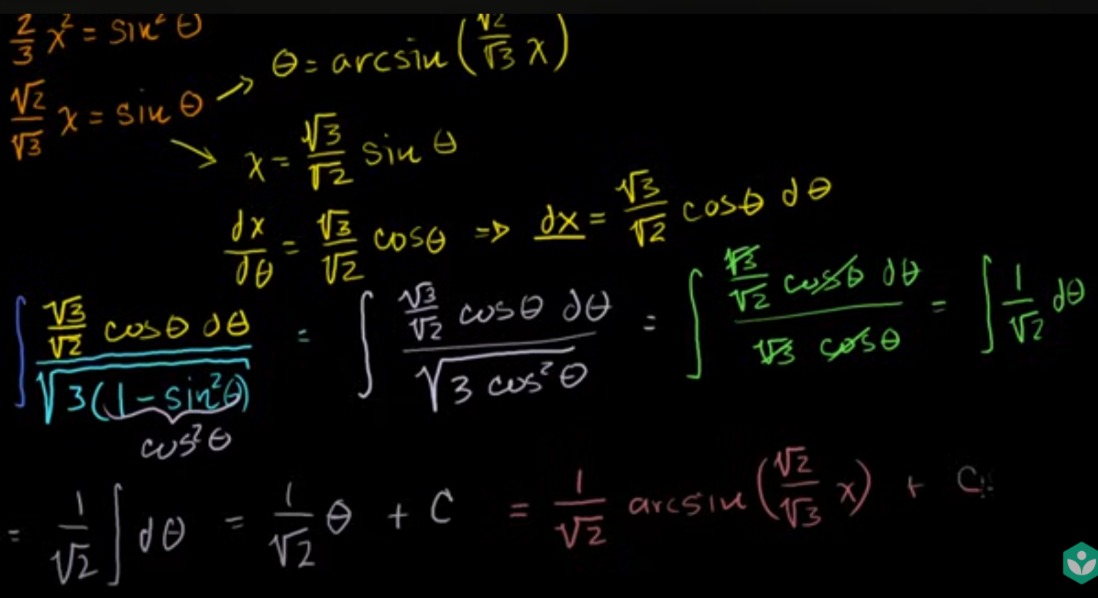 2/3 x² = sin² θ
√2/√3 x = sin θ
θ = arcsin (√2/√3 x)
x = √3/√2 sin θ
dx/dθ = √3/√2 cosθ => dx = √3/√2 cosθ dθ
∫ (√3/√2 cosθ dθ)/√(3(1 - sin²θ)) = ∫ (√3/√2 cosθ dθ)/√(3 cos²θ) = ∫ (√3/√2 cosθ dθ)/(√3 cosθ) = ∫ 1/√2 dθ
cos²θ
= 1/√2 ∫ dθ = 1/√2 θ + C = 1/√2 arcsin (√2/√3 x) + C